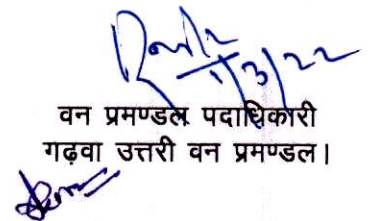 1/3/22
वन प्रमण्डल पदाधिकारी
गढ़वा उत्तरी वन प्रमण्डल।